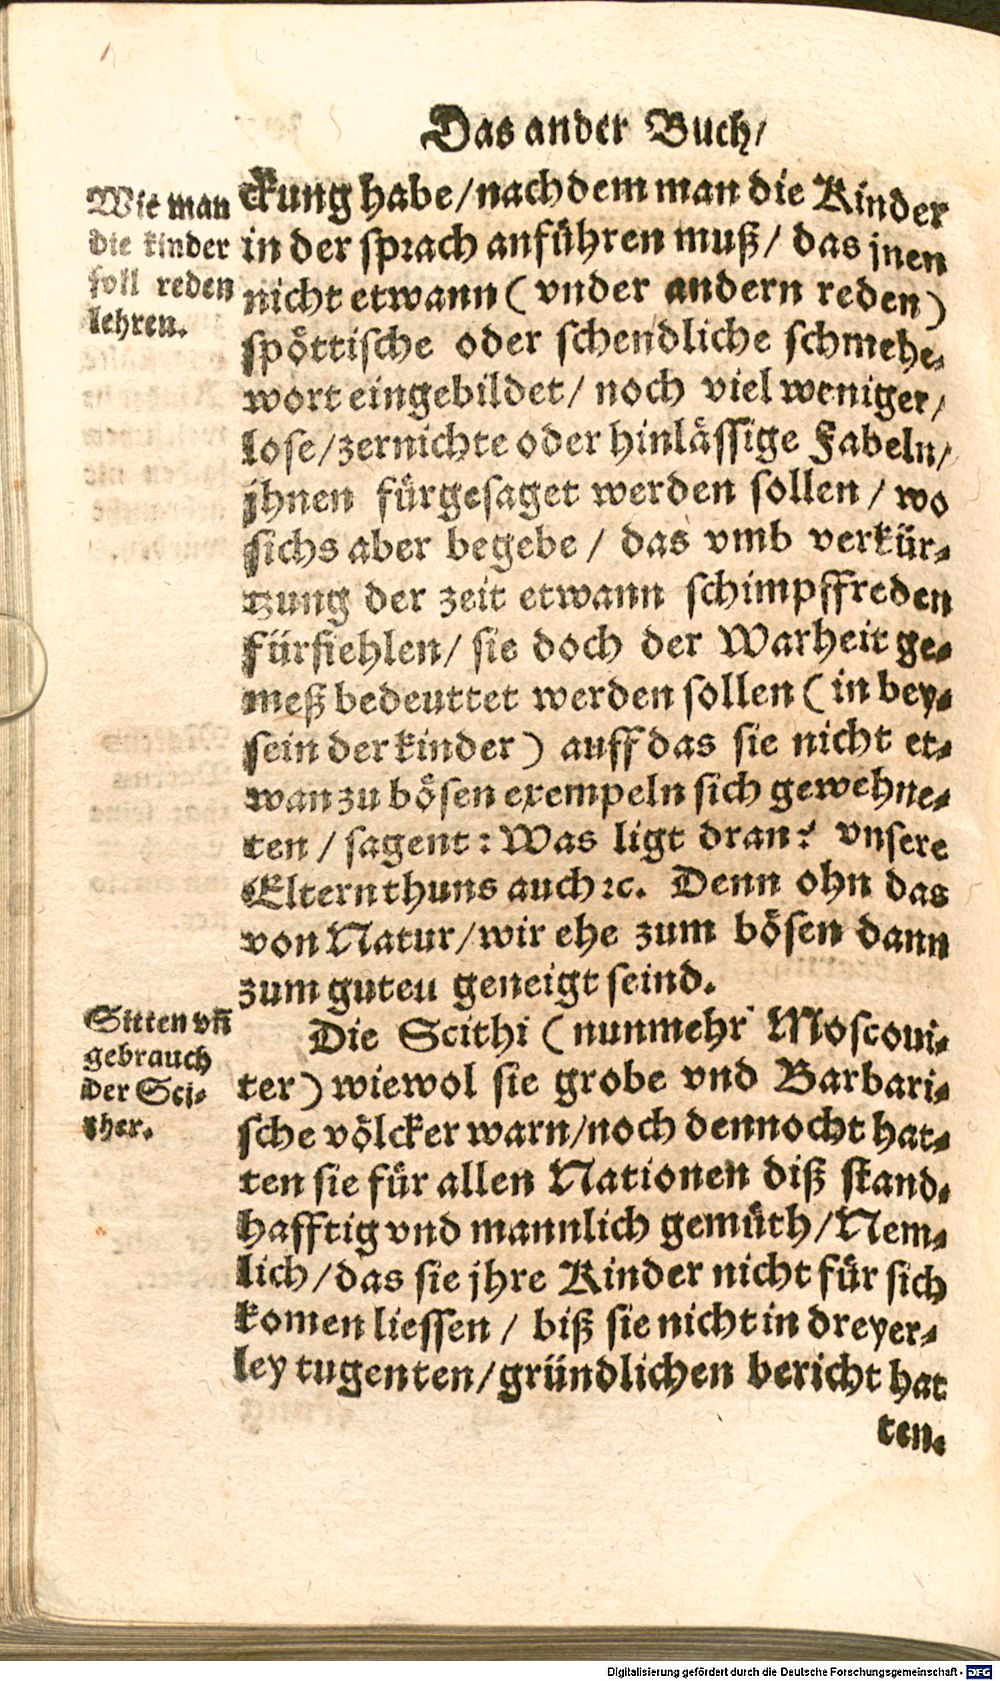 Das ander Buch/
Wie man
die kinder
soll reden
lehren.
ckung habe/nach dem man die Kinder
in der sprach anführen muß/ das jnen
nicht etwann (vnder andern reden)
spöttische oder schendliche schmehe-
wort eingebildet/ noch viel weniger/
lose/zernichte oder hinlässige Fabeln/
jhnen fürgesaget werden sollen/ wo
sichs aber begebe/ das vmb verkür-
tzung der zeit etwann schimpffreden
fürfiehlen/ sie doch der Warheit ge-
meß bedeuttet werden sollen (in bey-
sein der kinder) auff das sie nicht et-
wan zu bösen exempeln sich gewehne-
ten/ sagent: Was ligt dran? vnsere
Eltern thuns auch ꝛc. Denn ohn das
von Natur/wir ehe zum bösen dann
zum guteu geneigt seind.
Sitten vñ
gebrauch
der Sci-
ther.
Die Scithi (nunmehr Moscoui-
ter) wiewol sie grobe vnd Barbari-
sche völcker warn/noch dennocht hat-
ten sie für allen Nationen diß stand-
hafftig vnd mannlich gemüth/Nem-
lich/das sie jhre Kinder nicht für sich
komen liessen/ biß sie nicht in dreyer-
ley tugenten/gründlichen bericht hat
ten.
Digitalisierung gefördert durch die Deutsche Forschungsgemeinschaft - DFG